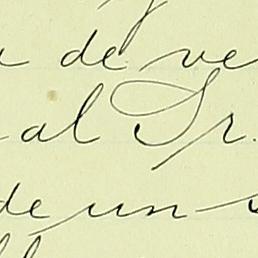 de ve
al Sr.
de un